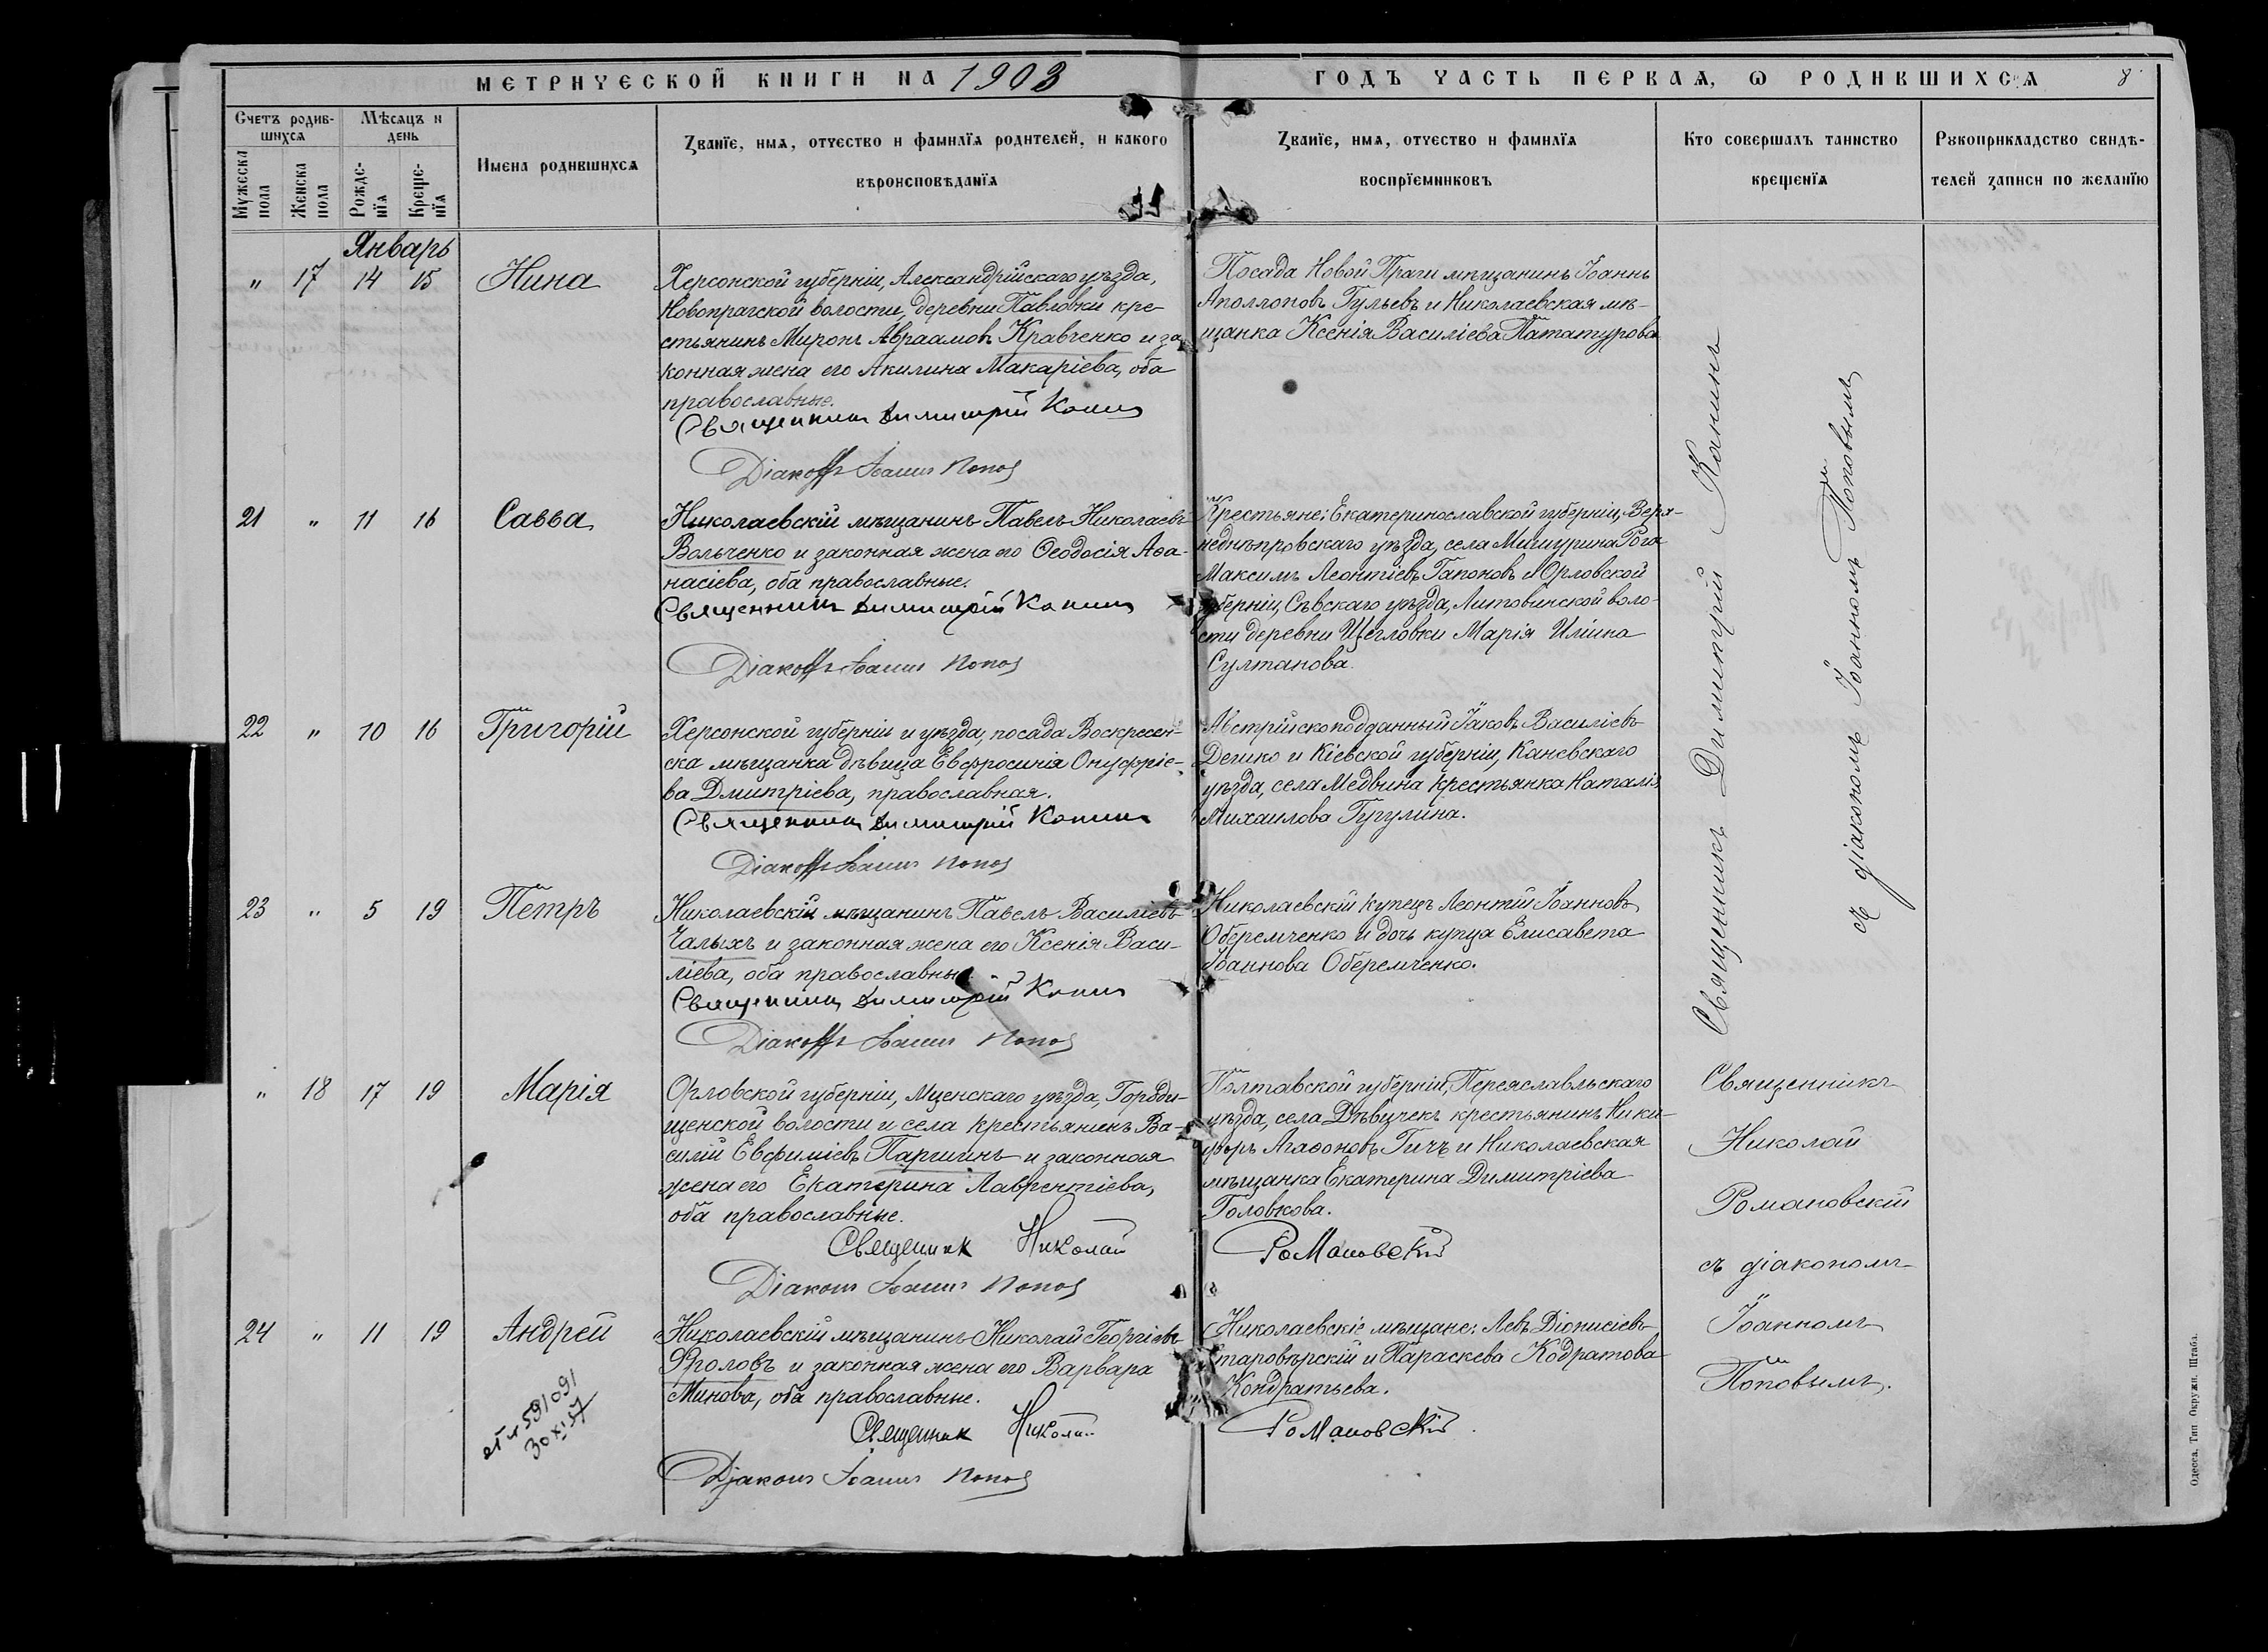 МЕТРИЧЕСКОЙ КНИГИ НА 1903
ГОДЪ ЧАСТЬ ПЕРВАЯ, Ѡ РОДИВШИХСѦ 8
Счетъ родив-
шихсѧ
Мѣсѧцъ и
день
Мꙋжеска
пола
Женска
пола
Рожде-
нїѧ
Креще-
нїѧ
Имена родившихсѧ
Званїе, имѧ, отчество и фамилїѧ родителей, и какого
вѣроисповѣданїѧ
Званїе, имѧ, отчество и фамилїѧ
воспрїемниковъ
Кто совершалъ таинство
крещенїѧ
Рꙋкоприкладство свидѣ-
телей записи по желанїю
Январь
" 17 14 15 Нина
Херсонской губерніи, Александрійскаго уѣзда,
Новопрагской волости, деревни Павловки кре-
стьянинъ Миронъ Авраамовъ Кравченко и за-
конная жена его Акилина Макаріева, оба
православные.
Священникъ Димитрій Канинъ
Діаконъ Іоаннъ Поповъ
Посада Новой Праги мѣщанинъ Іоаннъ
Аполлоновъ Гульевъ и Николаевская мѣ-
щанка Ксенія Василіева Пататурова
21 " 11 16 Савва
Николаевскій мѣщанинъ Павелъ Николаевъ
Вольченко и законная жена его Ѳеодосія Аѳа-
насіева, оба православные.
Священникъ Димитрій Канинъ
Діаконъ Іоаннъ Поповъ
Крестьяне: Екатеринославской губерніи, Верх-
неднѣпровскаго уѣзда, села Мишурина Рога
Максимъ Леонтіевъ Гапоновъ и Орловской
губерніи, Сѣвскаго уѣзда, Литовинской воло-
сти деревни Щегловки Марія Иліина
Султанова.
22 " 10 16 Григорій
Херсонской губерніи и уѣзда, посада Воскресен-
ска мѣщанка дѣвица Евфросинія Онуфріе-
ва Дмитріева, православная.
Священникъ Димитрій Канинъ
Діаконъ Іоаннъ Поповъ
Австрійскоподданный Іаковъ Василіевъ
Дешко и Кіевской губерніи, Каневскаго
уѣзда, села Медвина крестьянка Наталія
Михаилова Гугулина.
23 " 5 19 Петръ
Николаевскій мѣщанинъ Павелъ Василіевъ
Чалыхъ и законная жена его Ксенія Васи-
ліева, оба православные.
Священникъ Димитрій Канинъ
Діаконъ Іоаннъ Поповъ
Николаевскій купецъ Леонтій Іоанновъ
Оберемченко и дочь купца Елисавета
Іоаннова Оберемченко.
Священникъ Димитрій Канинъ
съ діакономъ Іоанномъ Поповымъ
" 18 17 19 Марія
Орловской губерніи, Мценскаго уѣзда, Городи-
щенской волости и села крестьянинъ Ва-
силій Евфиміевъ Паршинъ и законная
жена его Екатерина Лаврентіева,
оба православные.
Священник Николай
Романовскій
Діаконъ Іоаннъ Поповъ
Полтавской губерніи, Переяславльскаго
уѣзда, села Дѣвичекъ крестьянинъ Ники-
форъ Агаѳоновъ Гичъ и Николаевская
мѣщанка Екатерина Димитріева
Головкова.
Священникъ
Николай
Романовскій
съ діакономъ
Іоанномъ
Поповымъ.
24 " 11 19 Андрей
591091
30 XI 57
Николаевскій мѣщанинъ Николай Георгіевъ
Фроловъ и законная жена его Варвара
Минова, оба православные.
Священник Николай
Романовскій
Діаконъ Іоаннъ Поповъ
Николаевскіе мѣщане: Левъ Діонисіевъ
Старовѣрскій и Параскева Кодратова
Кондратьева.
Одесса. Тип. Окружн. Штаба.